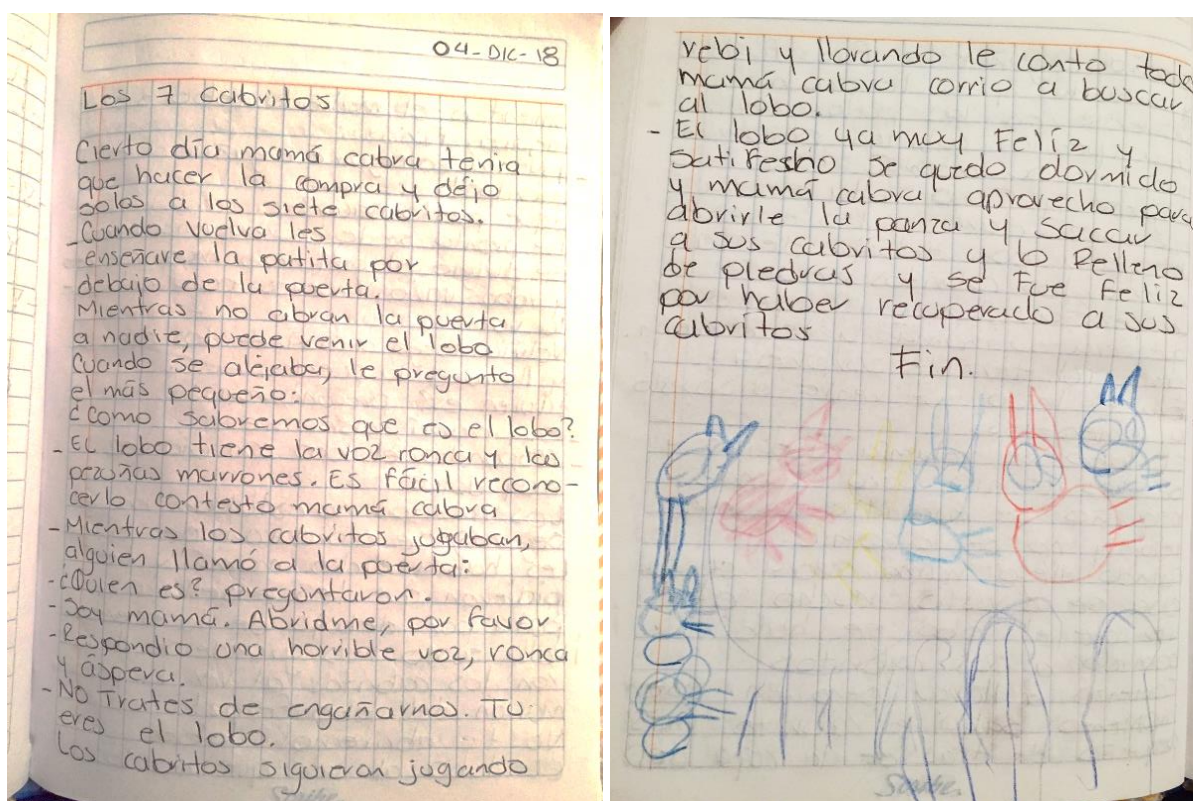 04-DIC-18
Los 7 Cabritos
Cierto día mamá cabra tenia
que hacer la compra y dejo
solos a los siete cabritos.
-Cuando vuelva les
enseñare la patita por
debajo de la puerta.
Mientras no abran la puerta
a nadie, puede venir el lobo
Cuando se alejaba, le pregunto
el más pequeño:
¿como sabremos que es el lobo?
- El lobo tiene la voz ronca y las
pezuñas marrones. Es fácil recono-
cerlo contesto mamá cabra
-Mientras los cabritos jugaban,
alguien llamó a la puerta:
-¿Quien es? preguntaron.
-Soy mamá. Abridme, por favor
-Respondio una horrible voz, ronca
y áspera.
-No Trates de engañarnos. Tu
eres el lobo.
Los cabritos siguieron jugando
Scribe
rebi y llorando le conto todo
mamá cabra corrio a buscar
al lobo.
- El lobo ya muy Felíz y
satifesho se quedo dormido
y mamá cabra aprovecho para
abrirle la panza y saccar
a sus cabritos y lo Relleno
de piedras y se fue feliz
por haber recuperado a sus
cabritos
Fin.
Scribe